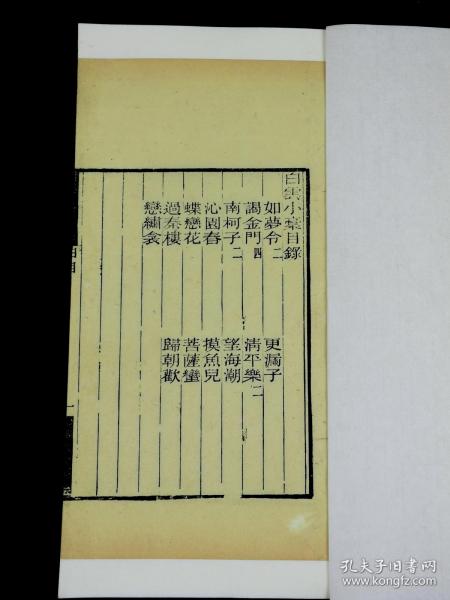 白雲小稾目錄
如夢令二
更漏子
謁金門四
清平樂二
南柯子二
望海潮
沁園春
摸魚兒
蝶戀花
菩薩蠻
過秦樓
歸朝歡
戀繡衾
一
孔夫子旧书网
www.kongfz.com